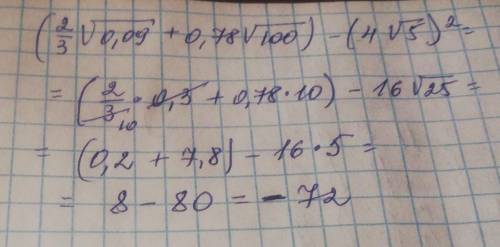 (2/3 √0,09 + 0,78√100) - (4√5)² =
= (2/3 · 0,3 + 0,78·10) - 16√25 =
10
= (0,2 + 7,8) - 16·5 =
= 8 - 80 = - 72